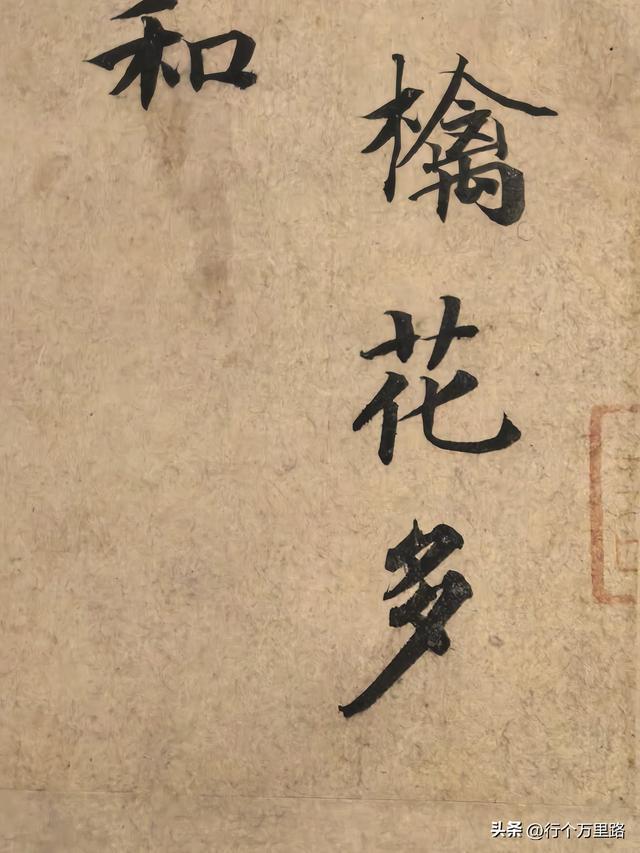 檎花多
和
头条 @行个万里路